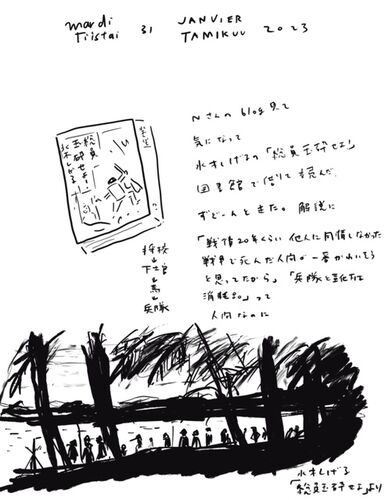 mardi 31 JANVIER 2023
Tiistai TAMIKUU
Nさんの blog 見て
気になって
水木しげるの「総員玉砕せよ!」
図書館で借りて読んだ。
ずどーんときた。解説に
「戦後20年くらい 他人に同情しなかった
戦争で死んだ人間が一番かわいそう
と思ってたから」「兵隊と靴下は
消耗品」って
人間なのに
総員
玉砕せよ!
水木しげる
将校
下士官
馬
兵隊
水木しげる
「総員玉砕せよ」より